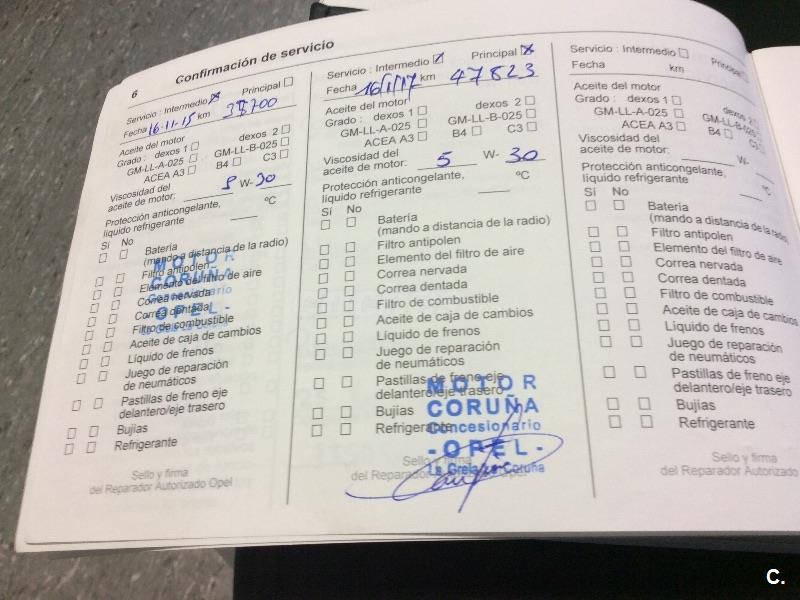 6 Confirmación de servicio
Servicio : Intermedio Principal
Fecha 16-11-15 km 38700
Aceite del motor
Grado : dexos 1 dexos 2
GM-LL-A-025 GM-LL-B-025
ACEA A3 B4 C3
Viscosidad del
aceite de motor: W- 30
Protección anticongelante,
líquido refrigerante ºC
Sí No
Batería
(mando a distancia de la radio)
Filtro antipolen
Elemento del filtro de aire
Correa nervada
Correa dentada
Filtro de combustible
Aceite de caja de cambios
Líquido de frenos
Juego de reparación
de neumáticos
Pastillas de freno eje
delantero/eje trasero
Bujías
Refrigerante
MOTOR
CORUÑA
Concesionario
OPEL -
Sello y firma
del Reparador Autorizado Opel
Servicio : Intermedio Principal
Fecha 16/1/17 km 47823
Aceite del motor
Grado : dexos 1 dexos 2
GM-LL-A-025 GM-LL-B-025
ACEA A3 B4 C3
Viscosidad del
aceite de motor: 5 W- 30
Protección anticongelante,
líquido refrigerante ºC
Sí No
Batería
(mando a distancia de la radio)
Filtro antipolen
Elemento del filtro de aire
Correa nervada
Correa dentada
Filtro de combustible
Aceite de caja de cambios
Líquido de frenos
Juego de reparación
de neumáticos
Pastillas de freno eje
delantero/eje trasero
Bujías
Refrigerante
MOTOR
CORUÑA
Concesionario
- OPEL -
La Grela La Coruña
Sello y firma
del Reparador Autorizado Opel
Servicio : Intermedio Principal
Fecha km
Aceite del motor
Grado : dexos 1 dexos 2
GM-LL-A-025 GM-LL-B-025
ACEA A3 B4 C3
Viscosidad del
aceite de motor: W-
Protección anticongelante,
líquido refrigerante ºC
Sí No
Batería
(mando a distancia de la radio)
Filtro antipolen
Elemento del filtro de aire
Correa nervada
Correa dentada
Filtro de combustible
Aceite de caja de cambios
Líquido de frenos
Juego de reparación
de neumáticos
Pastillas de freno eje
delantero/eje trasero
Bujías
Refrigerante
Sello y firma
del Reparador Autorizado
C.